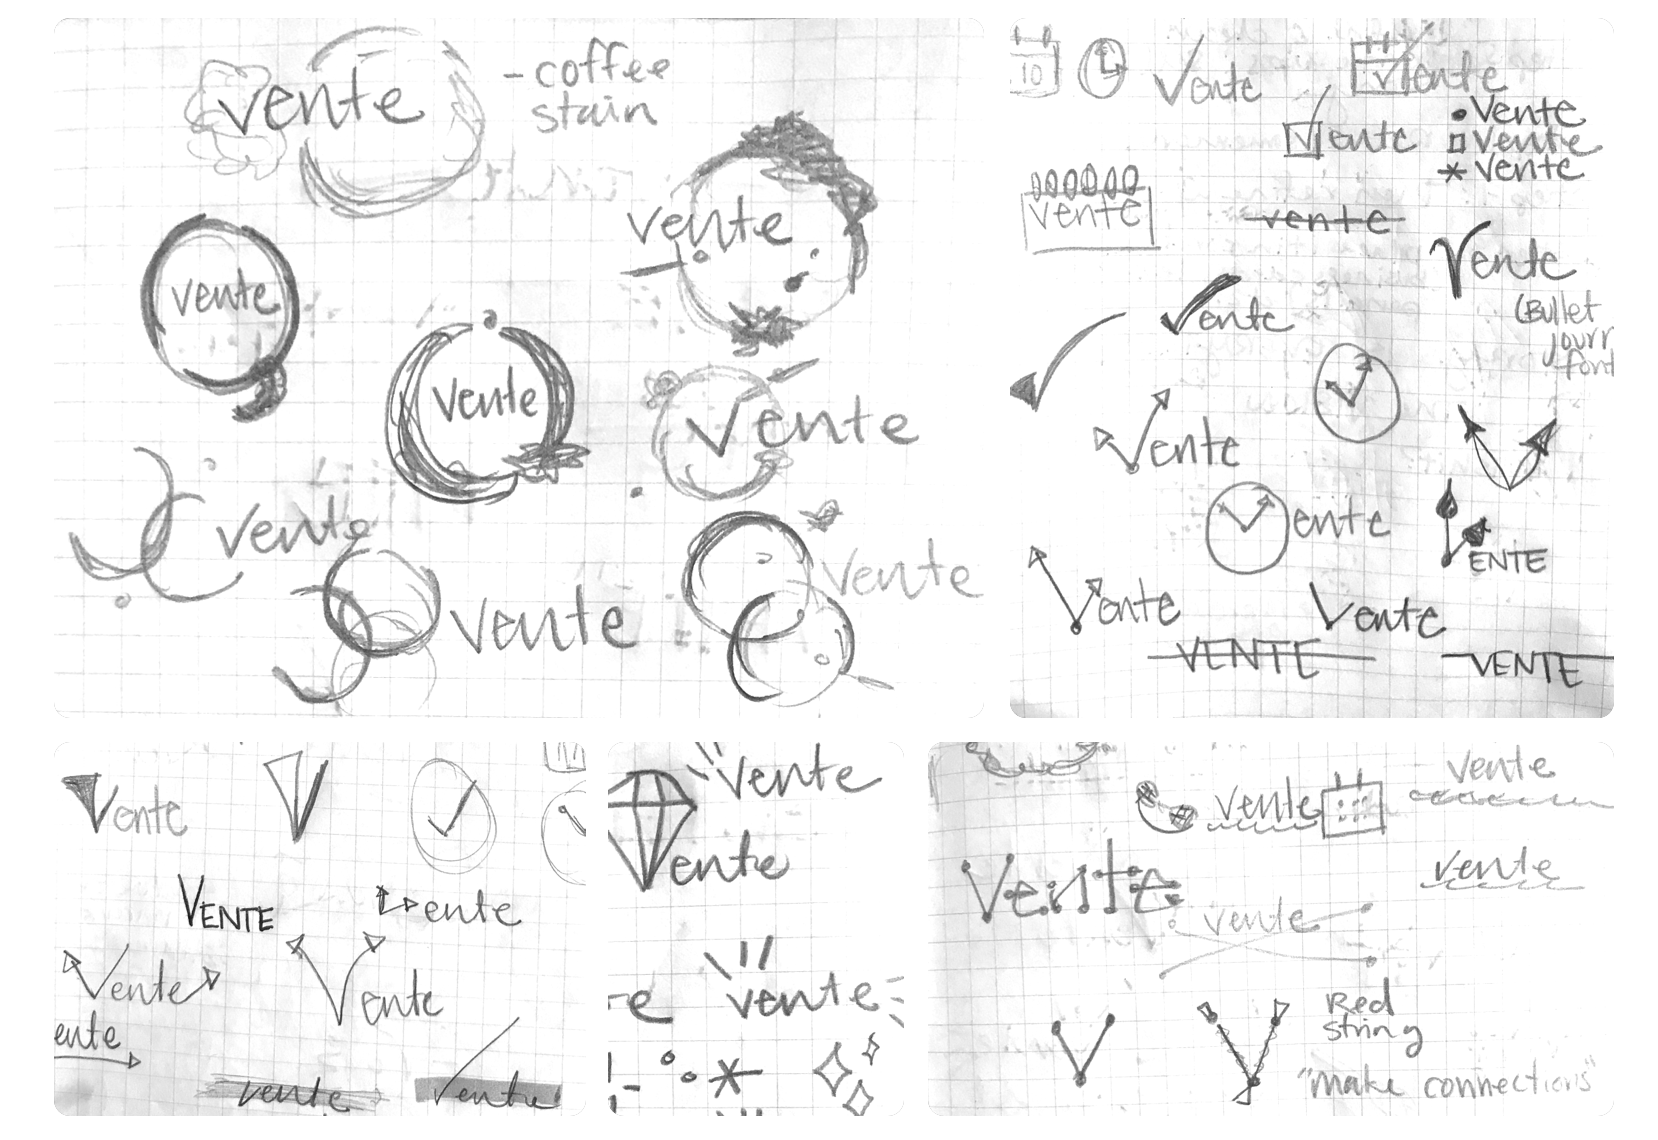 vente
-coffee
stain
vente
vente
vente
vente
vente
vente
vente
10
Vente
Vente
Vente
• Vente
□ Vente
* Vente
vente
vente
Vente
(Bullet
Vente
Vente
ente
ENTE
Vente
Vente
VENTE
VENTE
Vente
VENTE
ente
Vente
Vente
ente
vente
Vente
Vente
Vente
e
vente
vente
vente
vente
Vente
vente
Red
string
"make connections"